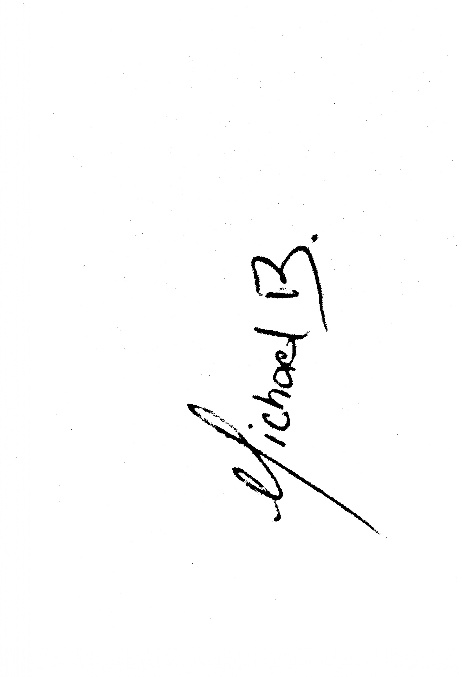 Michael B.